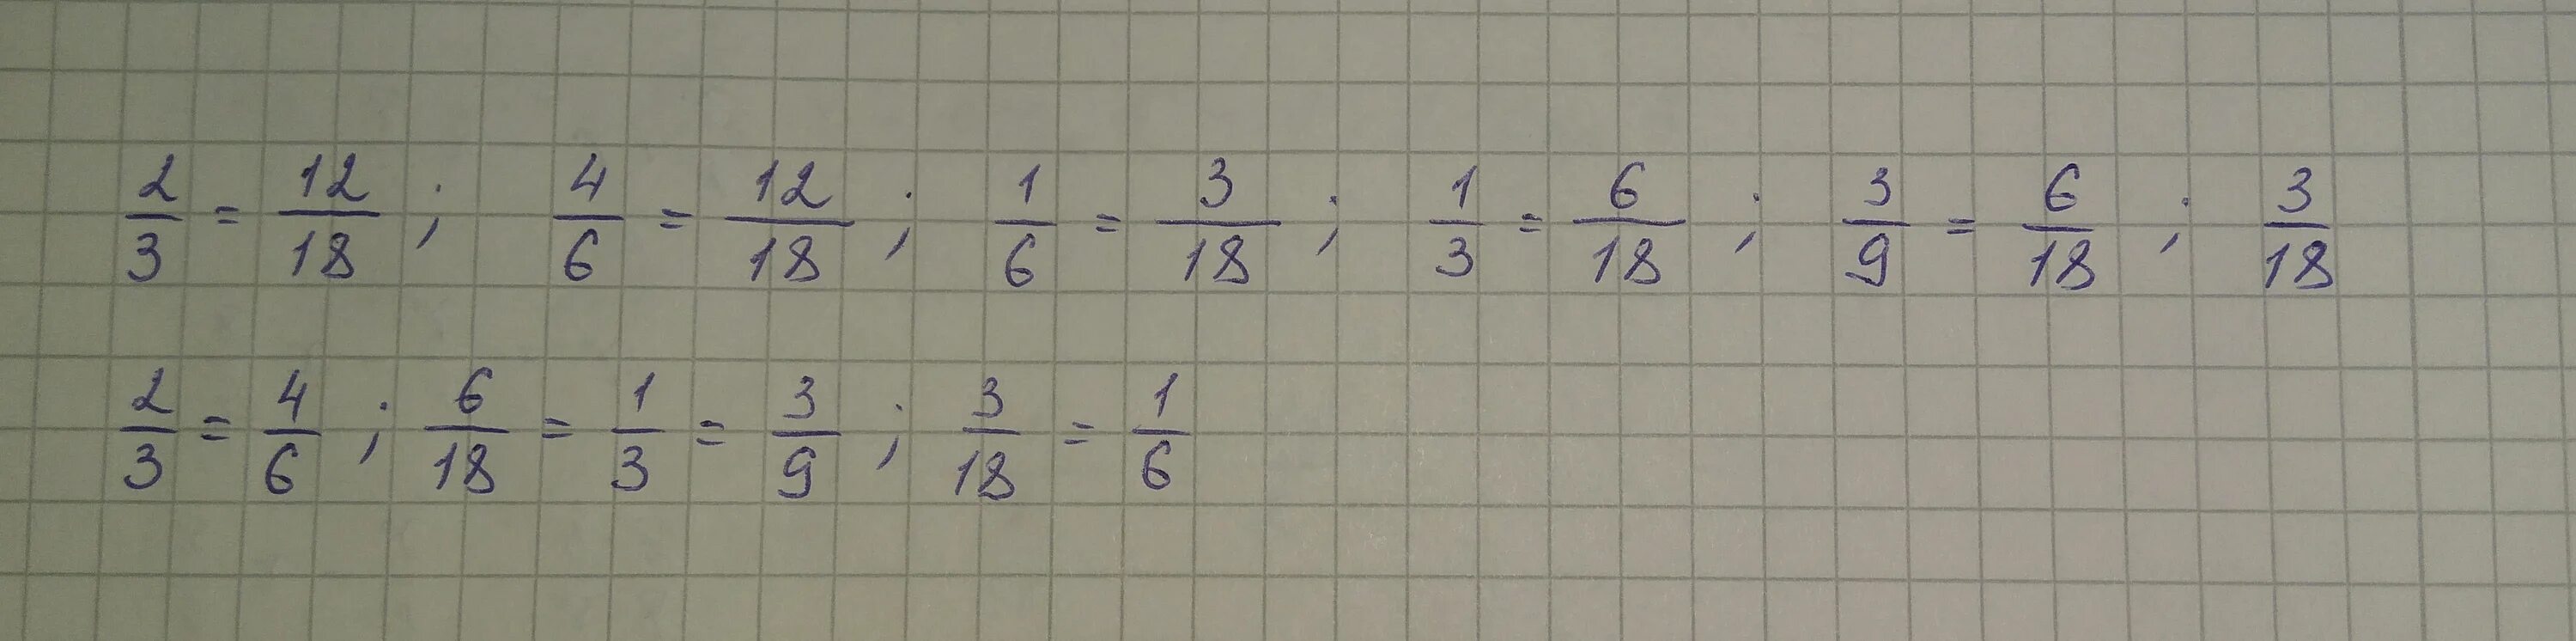 2/3 = 12/18 ; 4/6 = 12/18 ; 1/6 = 3/18 ; 1/3 = 6/18 ; 3/9 = 6/18 ; 3/18
2/3 = 4/6 ; 6/18 = 1/3 = 3/9 ; 3/18 = 1/6